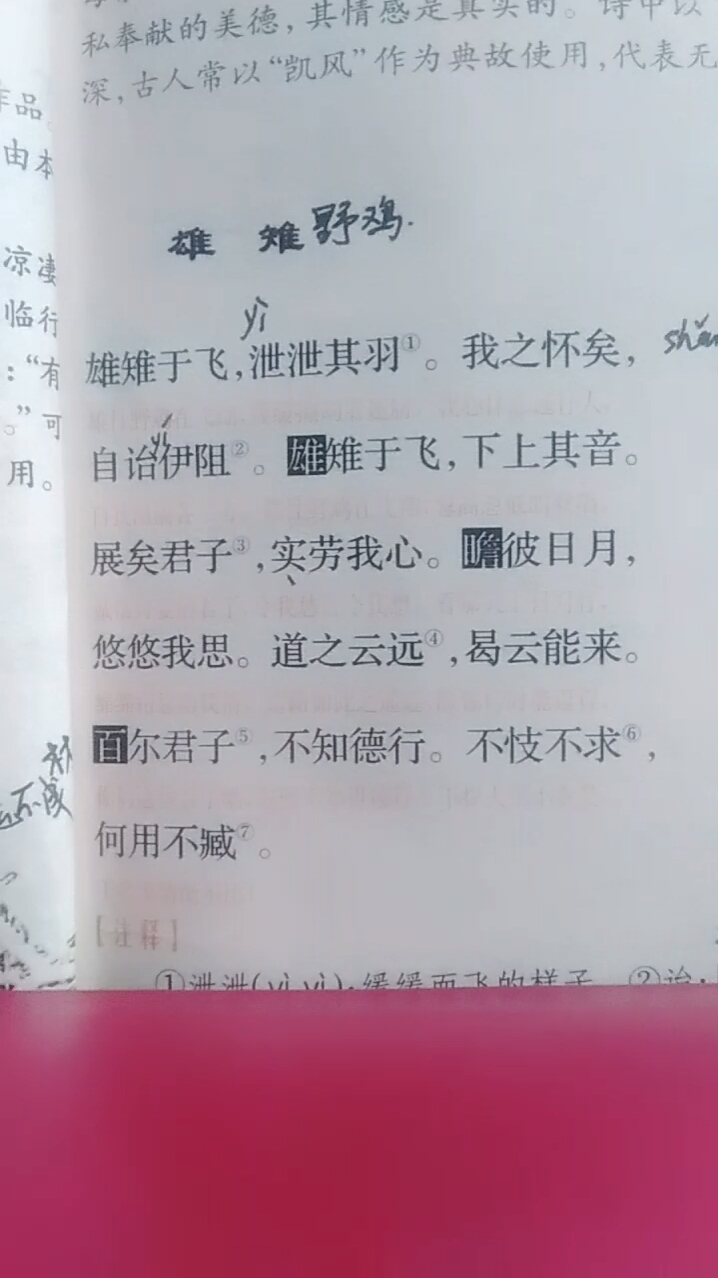 私奉献的美德，其情感是真实的。诗中以
深，古人常以“凯风”作为典故使用，代表无
作品
由本
凉凄
临行
：“有
。”可
用。
雄 雉 野鸡.
yì
雄雉于飞，泄泄其羽①。我之怀矣，
shǎn
yí
自诒伊阻②。雄雉于飞，下上其音。
展矣君子③，实劳我心。瞻彼日月，
悠悠我思。道之云远④，曷云能来。
百尔君子⑤，不知德行。不忮不求⑥，
何用不臧⑦。
【注释】
①泄泄(yì yì)：缓缓而飞的样子。②诒：